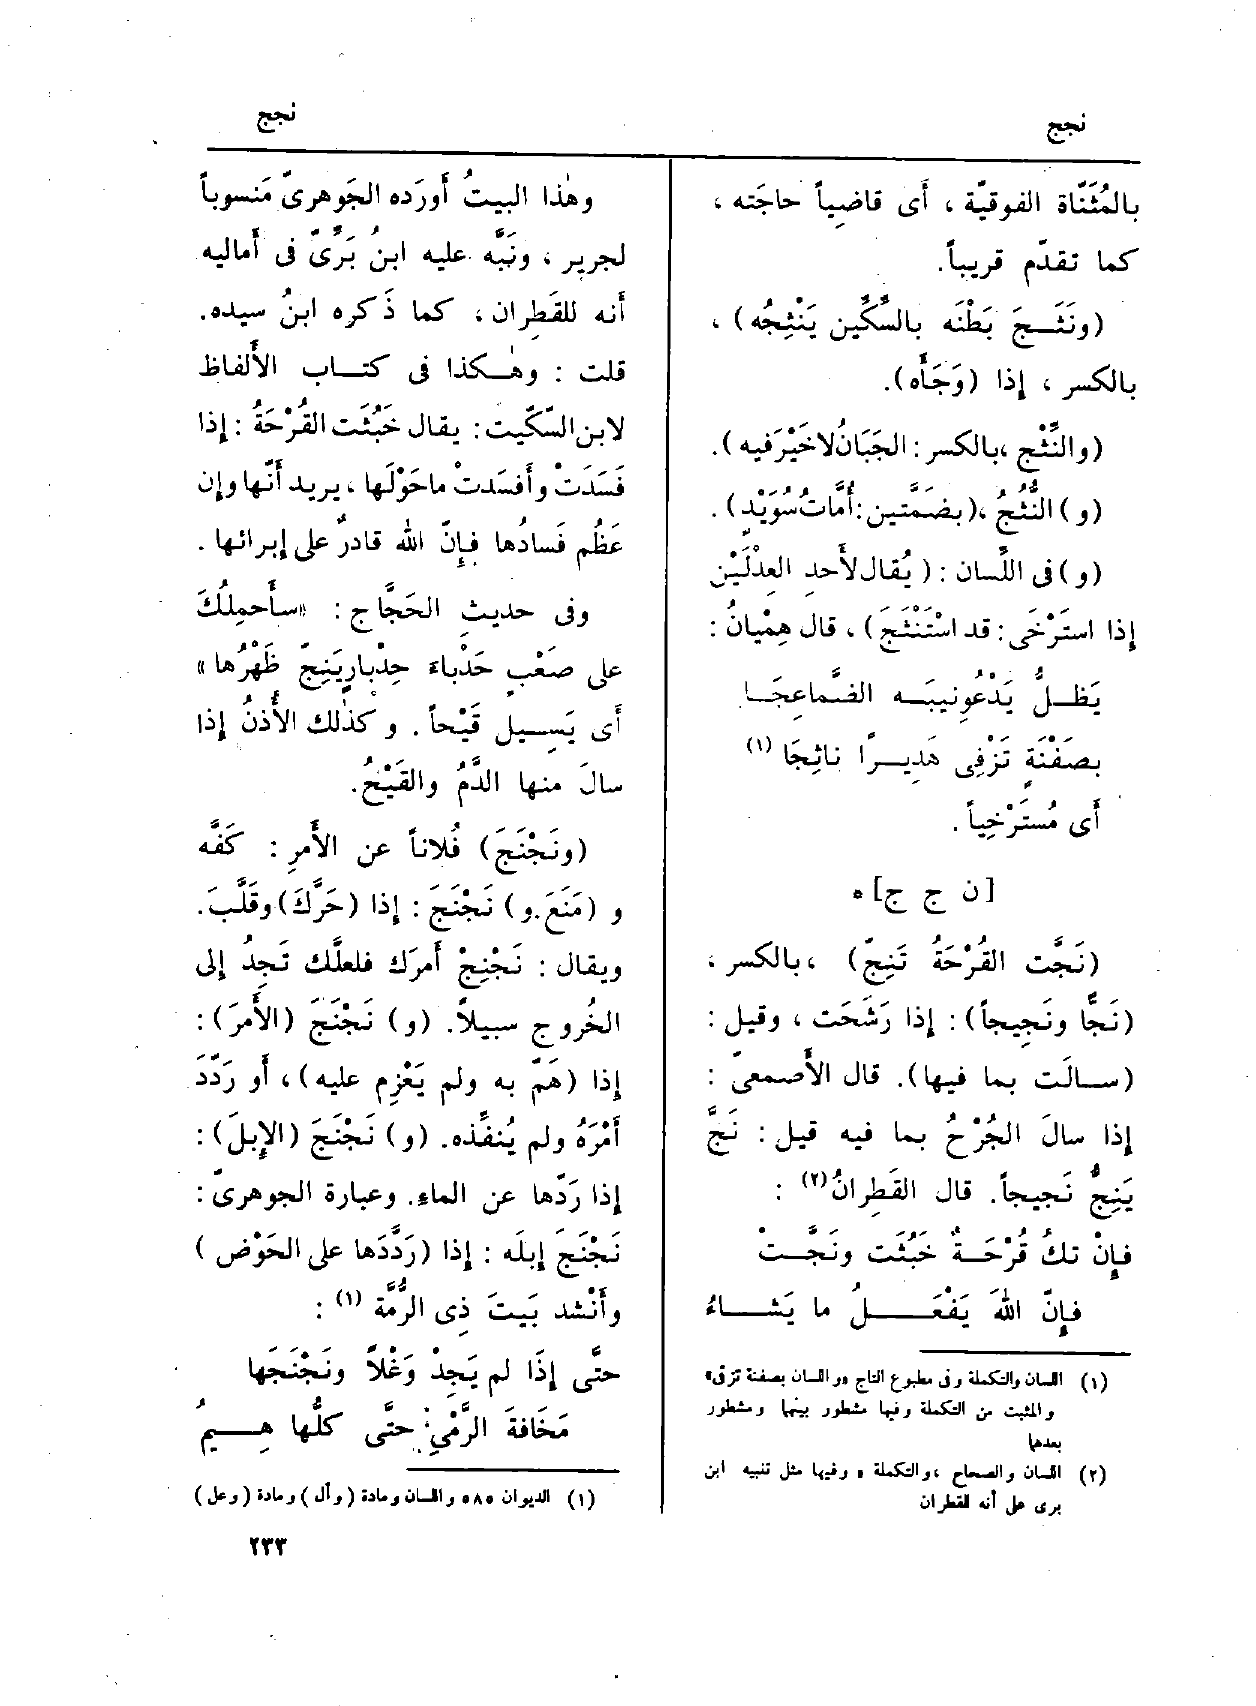 نجج
نجج
بالمُثَنَّاة الفوقيّة ، أى قاضِياً حاجَته ،
كما تقدّم قريباً.
(ونَثَـجَ بَطْنَه بالسِّكِّين يَنْثِجُه) ،
بالكسر ، إذا (وَجَأَه).
(والنِّثْج ،بالكسر : الجَبَانُ لاخَيْرَ فيه).
(و) النُّثُجُ ،(بضَمَّتين :أُمَّاتُ سُوَيْدٍ) .
(و) فى اللِّسان : ( يُقال لأَحدِ العِدْلَيْن
إذا استَرْخَى : قد اسْتَنْثَجَ) ، قال هِمْيانُ :
يَظـلُّ يَدْعُونِيبَـه الضَّماعِجَـا
بصَفْنَةٍ تَزْفِى هَدِيـرًا ناثِجَا (١)
أى مُستَرْخِياً .
[ن ج ج] *
(نَجَّت القُرْحَةُ تَنِجّ) ،بالكسر ،
(نَجًّا ونَجِيجاً) : إذا رَشَحَت ، وقيل :
(سـالَت بما فيها). قال الأَصمعىّ :
إذا سالَ الجُرْحُ بما فيه قيل : نَجَّ
يَنِجُّ نَجيجاً. قال القَطِرانُ (٢) :
فإنْ تكُ قُرْحَـةٌ خَبُثَت ونَجَّـتْ
فإنّ اللهَ يَفْعَـــلُ ما يَشـاءُ
(١) اللسان والتكملة وفى مطبوع التاج «واللسان بصفنة تزقى»
والمثبت من التكملة وفيها مشطور بينهما ومشطور
بعدهما
(٢) اللسان والصحاح ،والتكملة ، وفيها مثل تنبيه ابن
برى على أنه للقطران
وهٰذا البيتُ أَورَده الجَوهرىّ مَنسوباً
لجرير ، ونَبَّه عليه ابنُ بَرِّىّ فى أَماليه
أَنه للقَطِران ، كما ذَكره ابنُ سيده.
قلت : وهٰـكذا فى كتـاب الأَلفاظ
لابن السِّكّيت : يقال خَبُثَت القُرْحَةُ : إذا
فَسَدَتْ وأَفسَدتْ ماحَوْلَها ، يريد أَنّها وإن
عَظُم فَسادُها فإنّ الله قادرٌ على إبرائها .
وفى حديث الحَجَّاج : «سأَحمِلُكَ
على صَعْبٍ حَدْباءَ حِدْبارٍ يَنِجّ ظَهْرُها»
أَى يَسِـيل قَيْحاً . وكذٰلك الأُذنُ إذا
سالَ منها الدَّمُ والقَيْحُ.
(ونَجْنَجَ) فُلاناً عن الأَمرِ : كَفَّه
و (مَنَعَ.و) نَجْنَجَ : إذا (حَرَّكَ) وقَلَّبَ.
ويقال : نَجْنِجْ أَمرَك فلعلَّك تَجِدُ إلى
الخُروج سبيلاً. (و) نَجْنَجَ (الأَمرَ) :
إذا (هَمّ به ولم يَعْزِم عليه) ، أَو رَدَّدَ
أَمْرَهُ ولم يُنفِّذه. (و) نَجْنَجَ (الإِبلَ) :
إذا رَدّها عن الماءِ. وعبارة الجوهرىّ :
نَجْنَجَ إبلَه : إذا (رَدَّدَها على الحَوْض )
وأَنْشد بَيتَ ذِى الرُّمَّة (١) :
حتَّى إِذَا لم يَجِدْ وَغْلاً ونَجْنَجَها
مَخَافةَ الرَّمْىِ حتَّى كلُّها هِـيمُ
(١) الديوان ٥٨٥ واللسان ومادة (وأل) ومادة (وعل)
٢٣٣